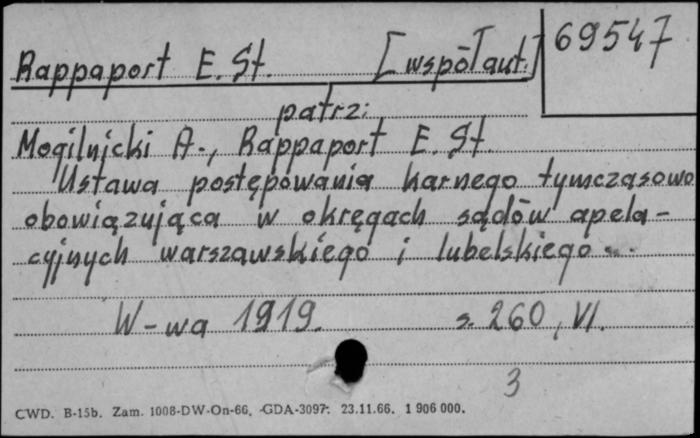 Rappaport E. St. [współaut.] 69547
patrz:
Mogilnicki A., Rappaport E. St.
Ustawa postępowania karnego tymczasowo
obowiązująca w okręgach sądów apela-
cyjnych warszawskiego i lubelskiego ...
W-wa 1919. s. 260, VI.
3
CWD. B-15b. Zam. 1008-DW-On-66. -GDA-3097. 23.11.66. 1 906 000.